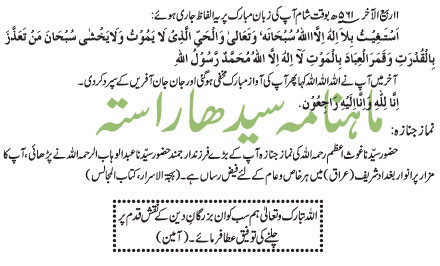 ۱۱ ربیع الآخر ۵۶۱ھ بوقت شام آپ کی زبان مبارک پر یہ الفاظ جاری ہوئے:
اَسْتَغِیْثُ بِلَا اِلٰہَ اِلَّا اللّٰہُ سُبْحَانَہٗ وَتَعَالیٰ وَالْحَیِّ الَّذِیْ لَا یَمُوْتُ وَلَا یَخْشٰی سُبْحَانَ مَنْ تَعَذَّزَ
بِالْقُدْرَتِ وَقَھَرَ الْعِبَادَ بِالْمَوْتِ لَآ اِلٰہَ اِلَّا اللّٰہُ مُحَمَّدٌ رَّسُوْلُ اللّٰہِ
آخر میں آپ نے اللہ اللہ اللہ کہا پھر آپ کی آواز مبارک مخفی ہوگئی اور جان جان آفریں کے سپرد کردی۔
اِنَّا لِلّٰہِ وَاِنَّا اِلَیْہِ رَاجِعُوْنَ.
ماہنامہ سیدھا راستہ
نماز جنازہ:
حضور سیّدنا غوث اعظم رحمہ اللہ کی نماز جنازہ آپ کے بڑے فرزند ارجمند حضور سیّدنا عبدالوہاب الرحمہ اللہ نے پڑھائی، آپ کا
مزار پر انوار بغداد شریف (عراق) میں ہر خاص و عام کے لئے فیض رساں ہے۔ (بہجۃ الاسرار، کتاب المجالس)
اللہ تبارک وتعالیٰ ہم سب کو ان بزرگان دین کے نقش قدم پر
چلنے کی توفیق عطا فرمائے۔ (آمین)